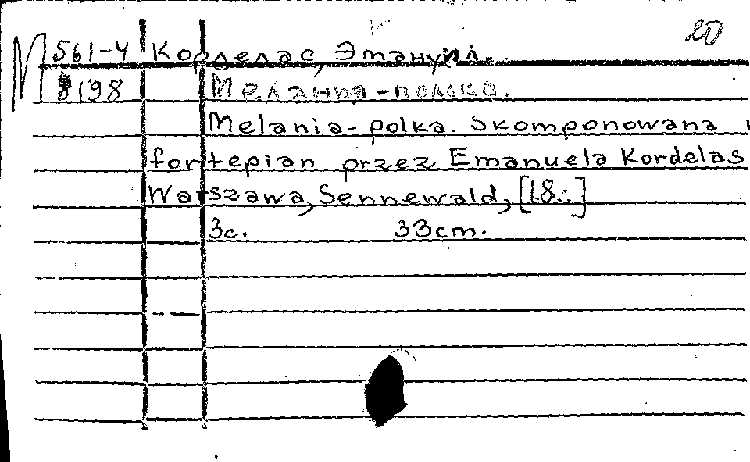 20
М 561-4 Корделас, Эмануил.
8198 Мелания-полка.
Melania-polka. Skomponowana
fortepian przez Emanuela Kordelas
Warszawa, Sennewald, [18..]
3с. 33cm.